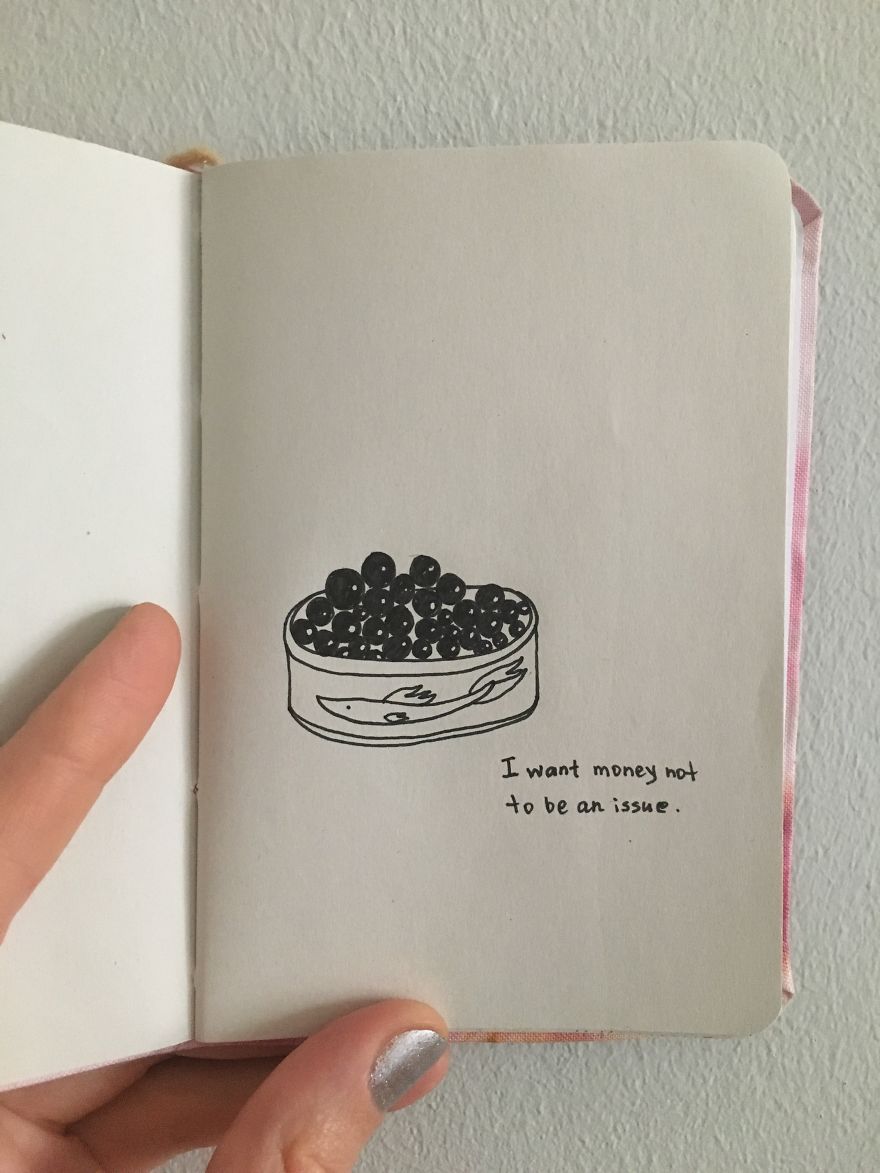 I want money not
to be an issue.